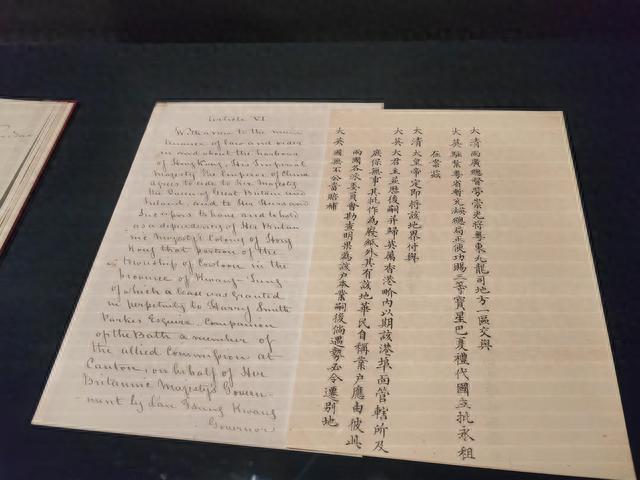 Article VI.
With a view to the main
tenance of law and order
in and about the harbour
of Hong Kong, His Imperial
Majesty the Emperor of China
agrees to cede to Her Majesty
the Queen of Great Britain and
Ireland, and to Her Heirs and
Successors, to have and to hold
as a dependency of Her Britan
nic Majesty's Colony of Hong
Kong that portion of the
township of Cowloon in the
province of Kwang-Tung
of which a lease was granted
in perpetuity to Harry Smith
Parkes Esquire, Companion
of the Bath a member of
the allied Commission at
Canton, on behalf of Her
Britannic Majesty's Govern-
ment by Lau Tsung Kwang
Governor
大清兩廣總督勞崇光將粵東九龍司地方一區交與
大英駐紮粵省暫充英總局正使功賜三等寶星巴夏禮代國立批永租
在案茲
大清大皇帝定即將該地界付與
大英大君主並歷後嗣並歸英屬香港界內以期該港埠面管轄所及
庶保無事其批作為廢紙外其有該地華民自稱業戶應由彼此
兩國各派委員會勘查明果為該戶本業嗣後倘遇勢必令遷別地
大英國無不公當賠補